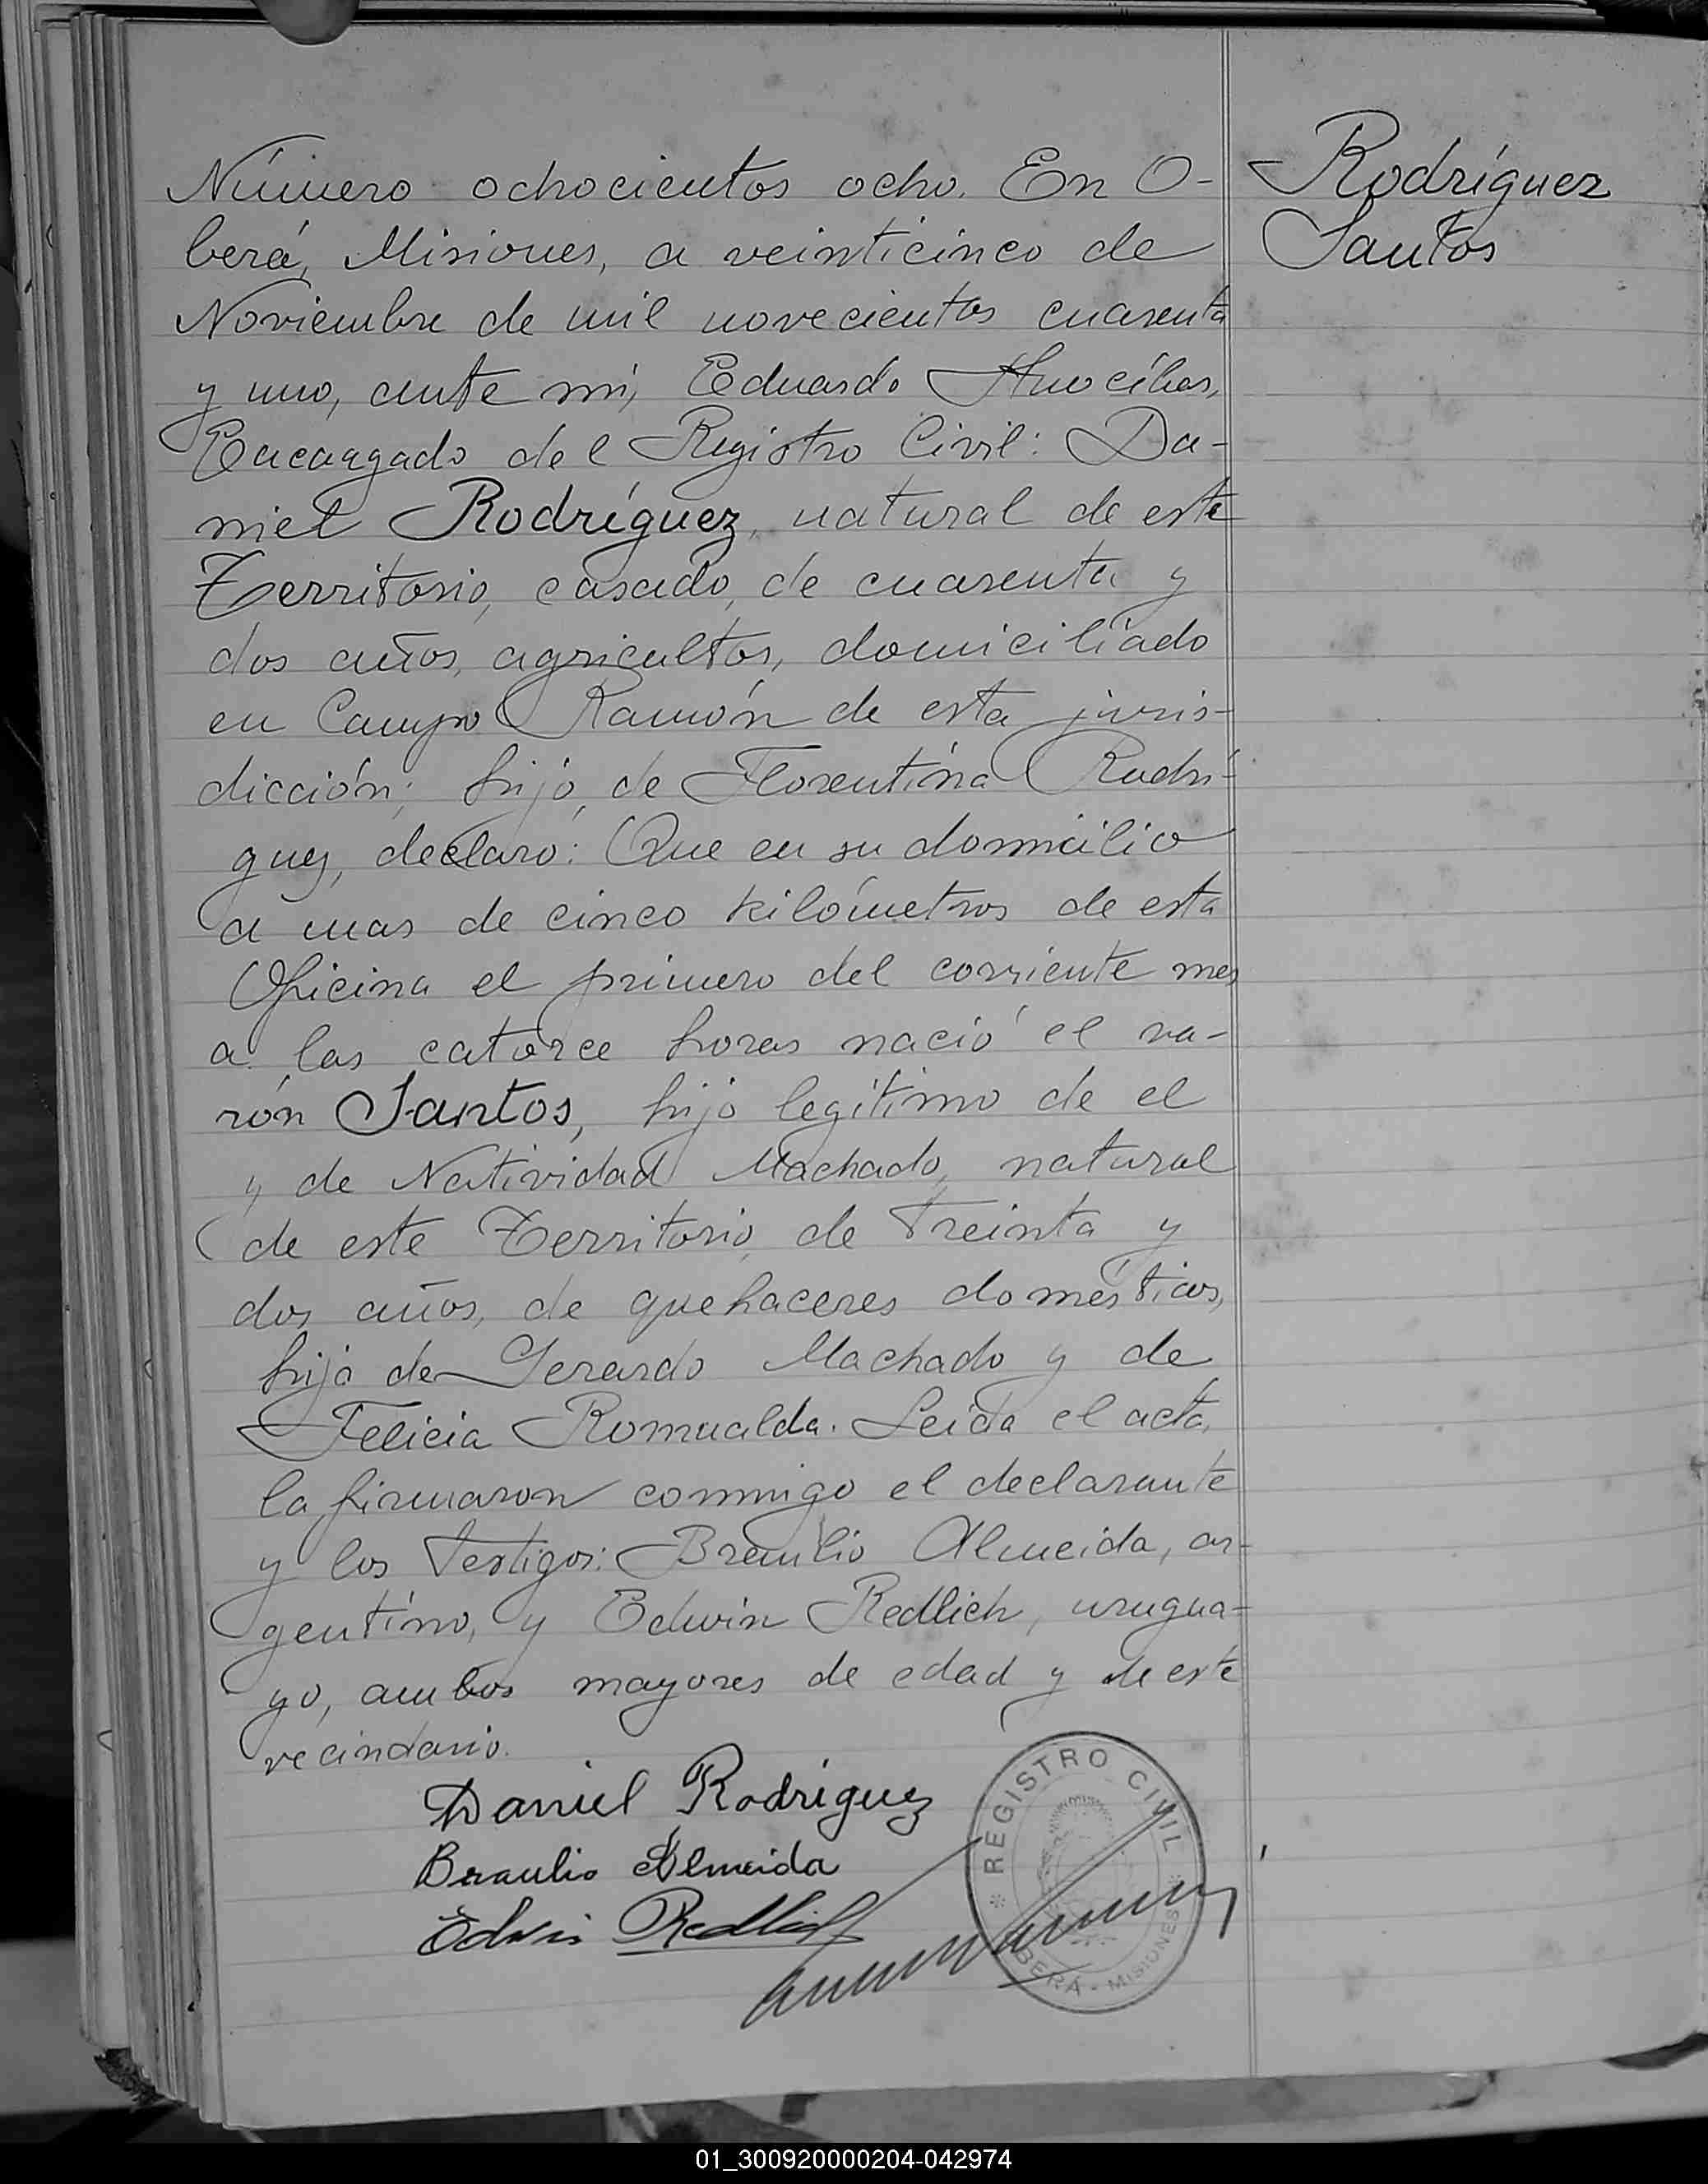 Número ochocientos ocho. En O-
berá, Misiones, a veinticinco de
Noviembre de mil novecientos cuarenta
y uno, ante mi, Eduardo
Encargado del Registro Civil: Da-
niel Rodríguez, natural de este
Territorio, casado, de cuarenta y
dos años, agricultor, domiciliado
en Campo Ramón de esta juris-
dicción; hijo de Florentina Rodrí-
guez, declaró: Que en su domicilio
a mas de cinco kilómetros de esta
Oficina el primero del corriente mes
a las catorce horas nació el va-
rón Santos, hijo legítimo de el
y de Natividad Machado, natural
de este Territorio, de treinta y
dos años, de quehaceres domésticos,
hija de Gerardo Machado y de
Felicia Romualda. Leída el acta,
la firmaron conmigo el declarante
y los testigos: Braulio Almeida, ar-
gentino, y Edwin Redlich, urugua-
yo, ambos mayores de edad y de este
vecindario.
Daniel Rodríguez
Braulio Almeida
Edwin Redlich
Rodríguez
Santos
REGISTRO CIVIL
OBERÁ - MISIONES
01_300920000204-042974